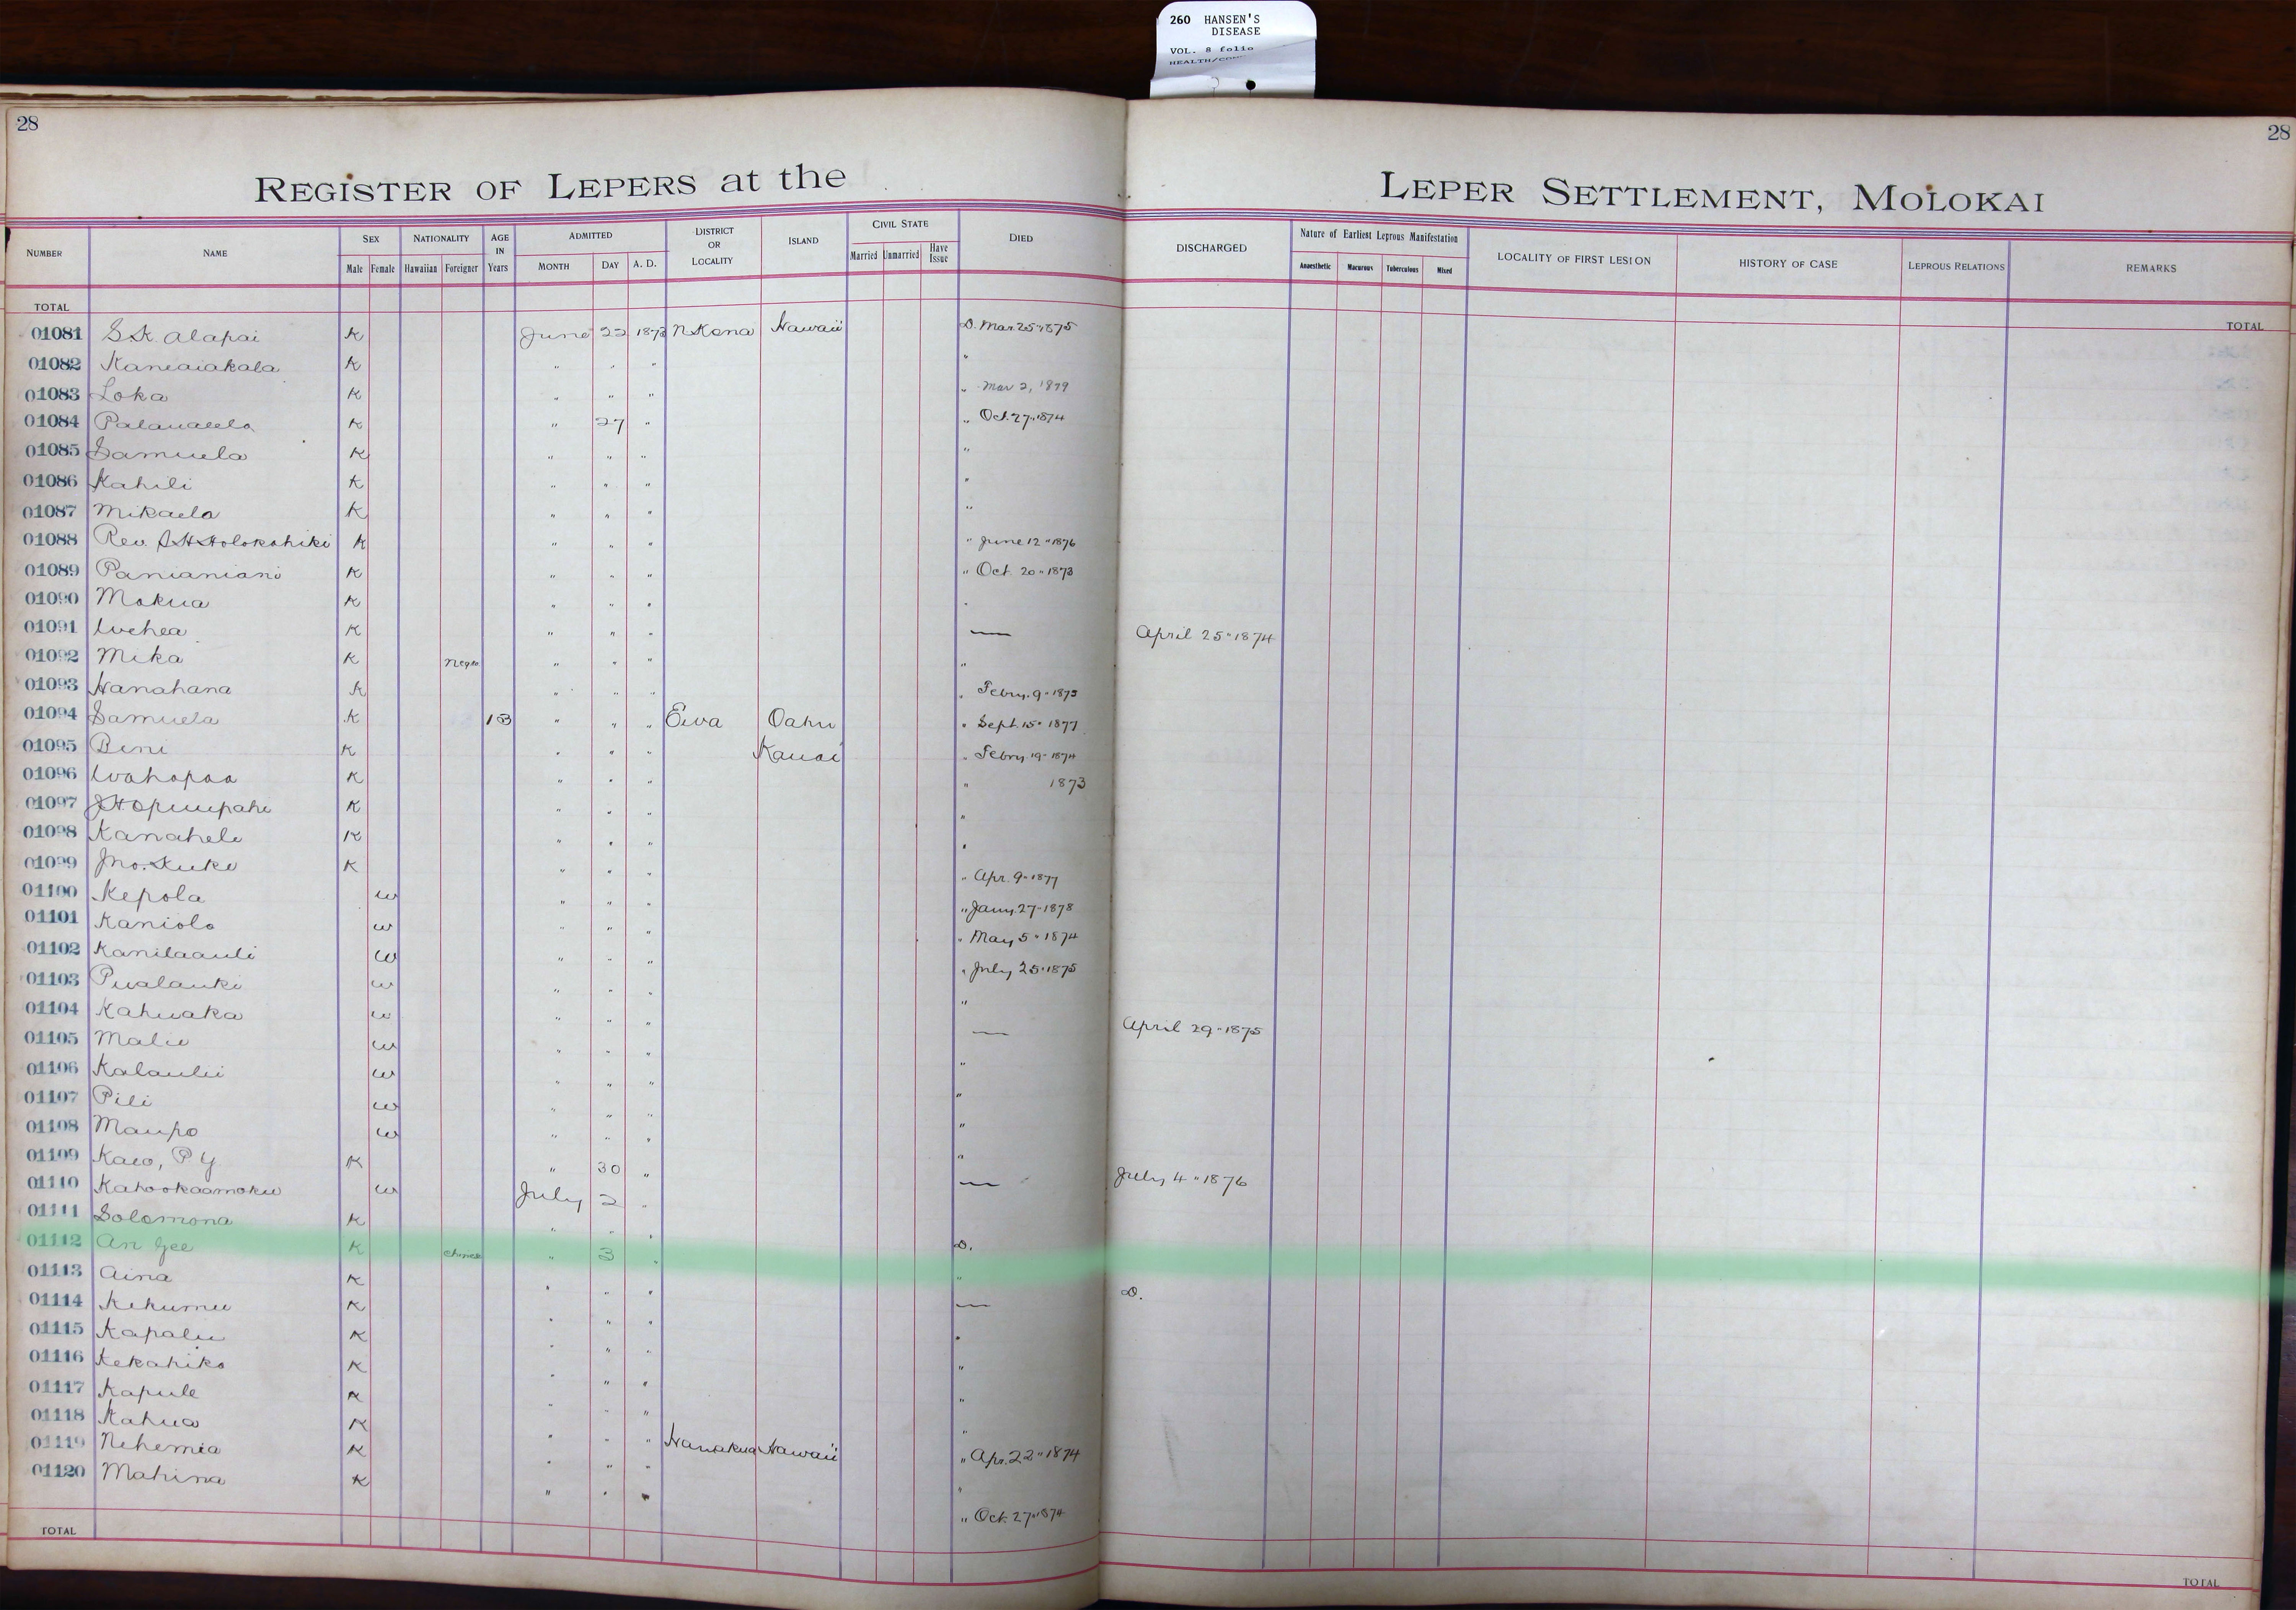 260 HANSEN'S
DISEASE
VOL. 8 folio
28
28
REGISTER OF LEPERS at the LEPER SETTLEMENT, MOLOKAI
NUMBER NAME SEX Male Female NATIONALITY Hawaiian Foreigner AGE IN Years ADMITTED MONTH DAY A. D. DISTRICT OR LOCALITY ISLAND CIVIL STATE Married Unmarried Have Issue DIED DISCHARGED Nature of Earliest Leprous Manifestation Anaesthetic Macurous Tuberculous Mixed LOCALITY OF FIRST LESION HISTORY OF CASE LEPROUS RELATIONS REMARKS
TOTAL TOTAL
01081 S.K. Alapai K June 22 1873 N Kona Hawaii D. Mar. 25 " 1875
01082 Kaneaiakala K " " " "
01083 Loka K " " " " Mar 2, 1879
01084 K " 27 " " Oct. 27 " 1874
01085 Samuela K " " " "
01086 Kahili K " " " "
01087 Mikaela K " " " "
01088 Rev. S H Holokahiki K " " " " June 12 " 1876
01089 Panianiani K " " " " Oct. 20 " 1873
01090 Mokua K " " " "
01091 Wehea K " " " — April 25 " 1874
01092 Mika K Negro " " " "
01093 Hanahana K " " " " Febry. 9 "
01094 Samuela K 13 " " " Ewa Oahu " Sept. 15 " 1877
01095 Beni K " " " Kauai " Febry 19 " 1874
01096 Wahapaa K " " " " 1873
01097 J.H. Opuupahi K " " " "
01098 Kanahele K " " " "
01099 Jno. Kuke K " " " " Apr. 9 " 1877
01100 Kepola w " " " " Jany. 27 " 1878
01101 Kaniolo w " " " " May 5 " 1874
01102 Kanilaauli w " " " " July 25 " 1875
01103 Pualauki w " " " "
01104 Kahuaka w " " " — April 29 " 1875
01105 Malie w " " " "
01106 Kalaulii w " " " "
01107 Pili w " " " "
01108 Maupo w " " " "
01109 Kaeo, P Y K " 30 " — July 4 " 1876
01110 Kahookaamoku w July 2 "
01111 Solomona K " " " D.
01112 An Gee K Chinese " 3 " "
01113 Aina K " " " — D.
01114 Kekumu K " " " "
01115 Kapalu K " " " "
01116 Kekahiko K " " " "
01117 Kapule K " " " "
01118 Kahua K " " " Hamakua Hawaii " Apr. 22 " 1874
01119 Nehemia K " " " "
01120 Mahina K " " " " Oct. 27 " 1874
TOTAL TOTAL